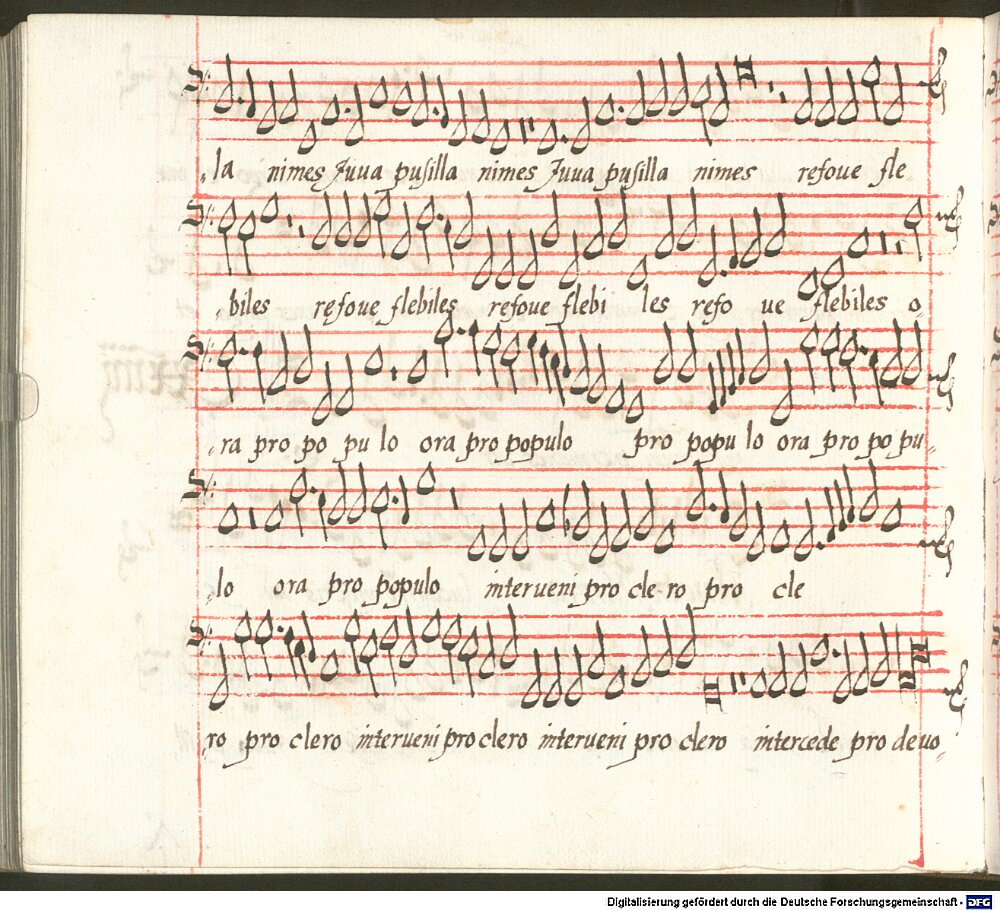 la nimes Juua pusilla nimes Juua pusilla nimes refoue fle-
biles refoue flebiles refoue flebi les refo ue flebiles o-
ra pro po pu lo ora pro populo pro popu lo ora pro po pu-
lo ora pro populo interueni pro cle-ro pro cle
ro pro clero interueni pro clero interueni pro clero intercede pro deuo-
Digitalisierung gefördert durch die Deutsche Forschungsgemeinschaft - DFG